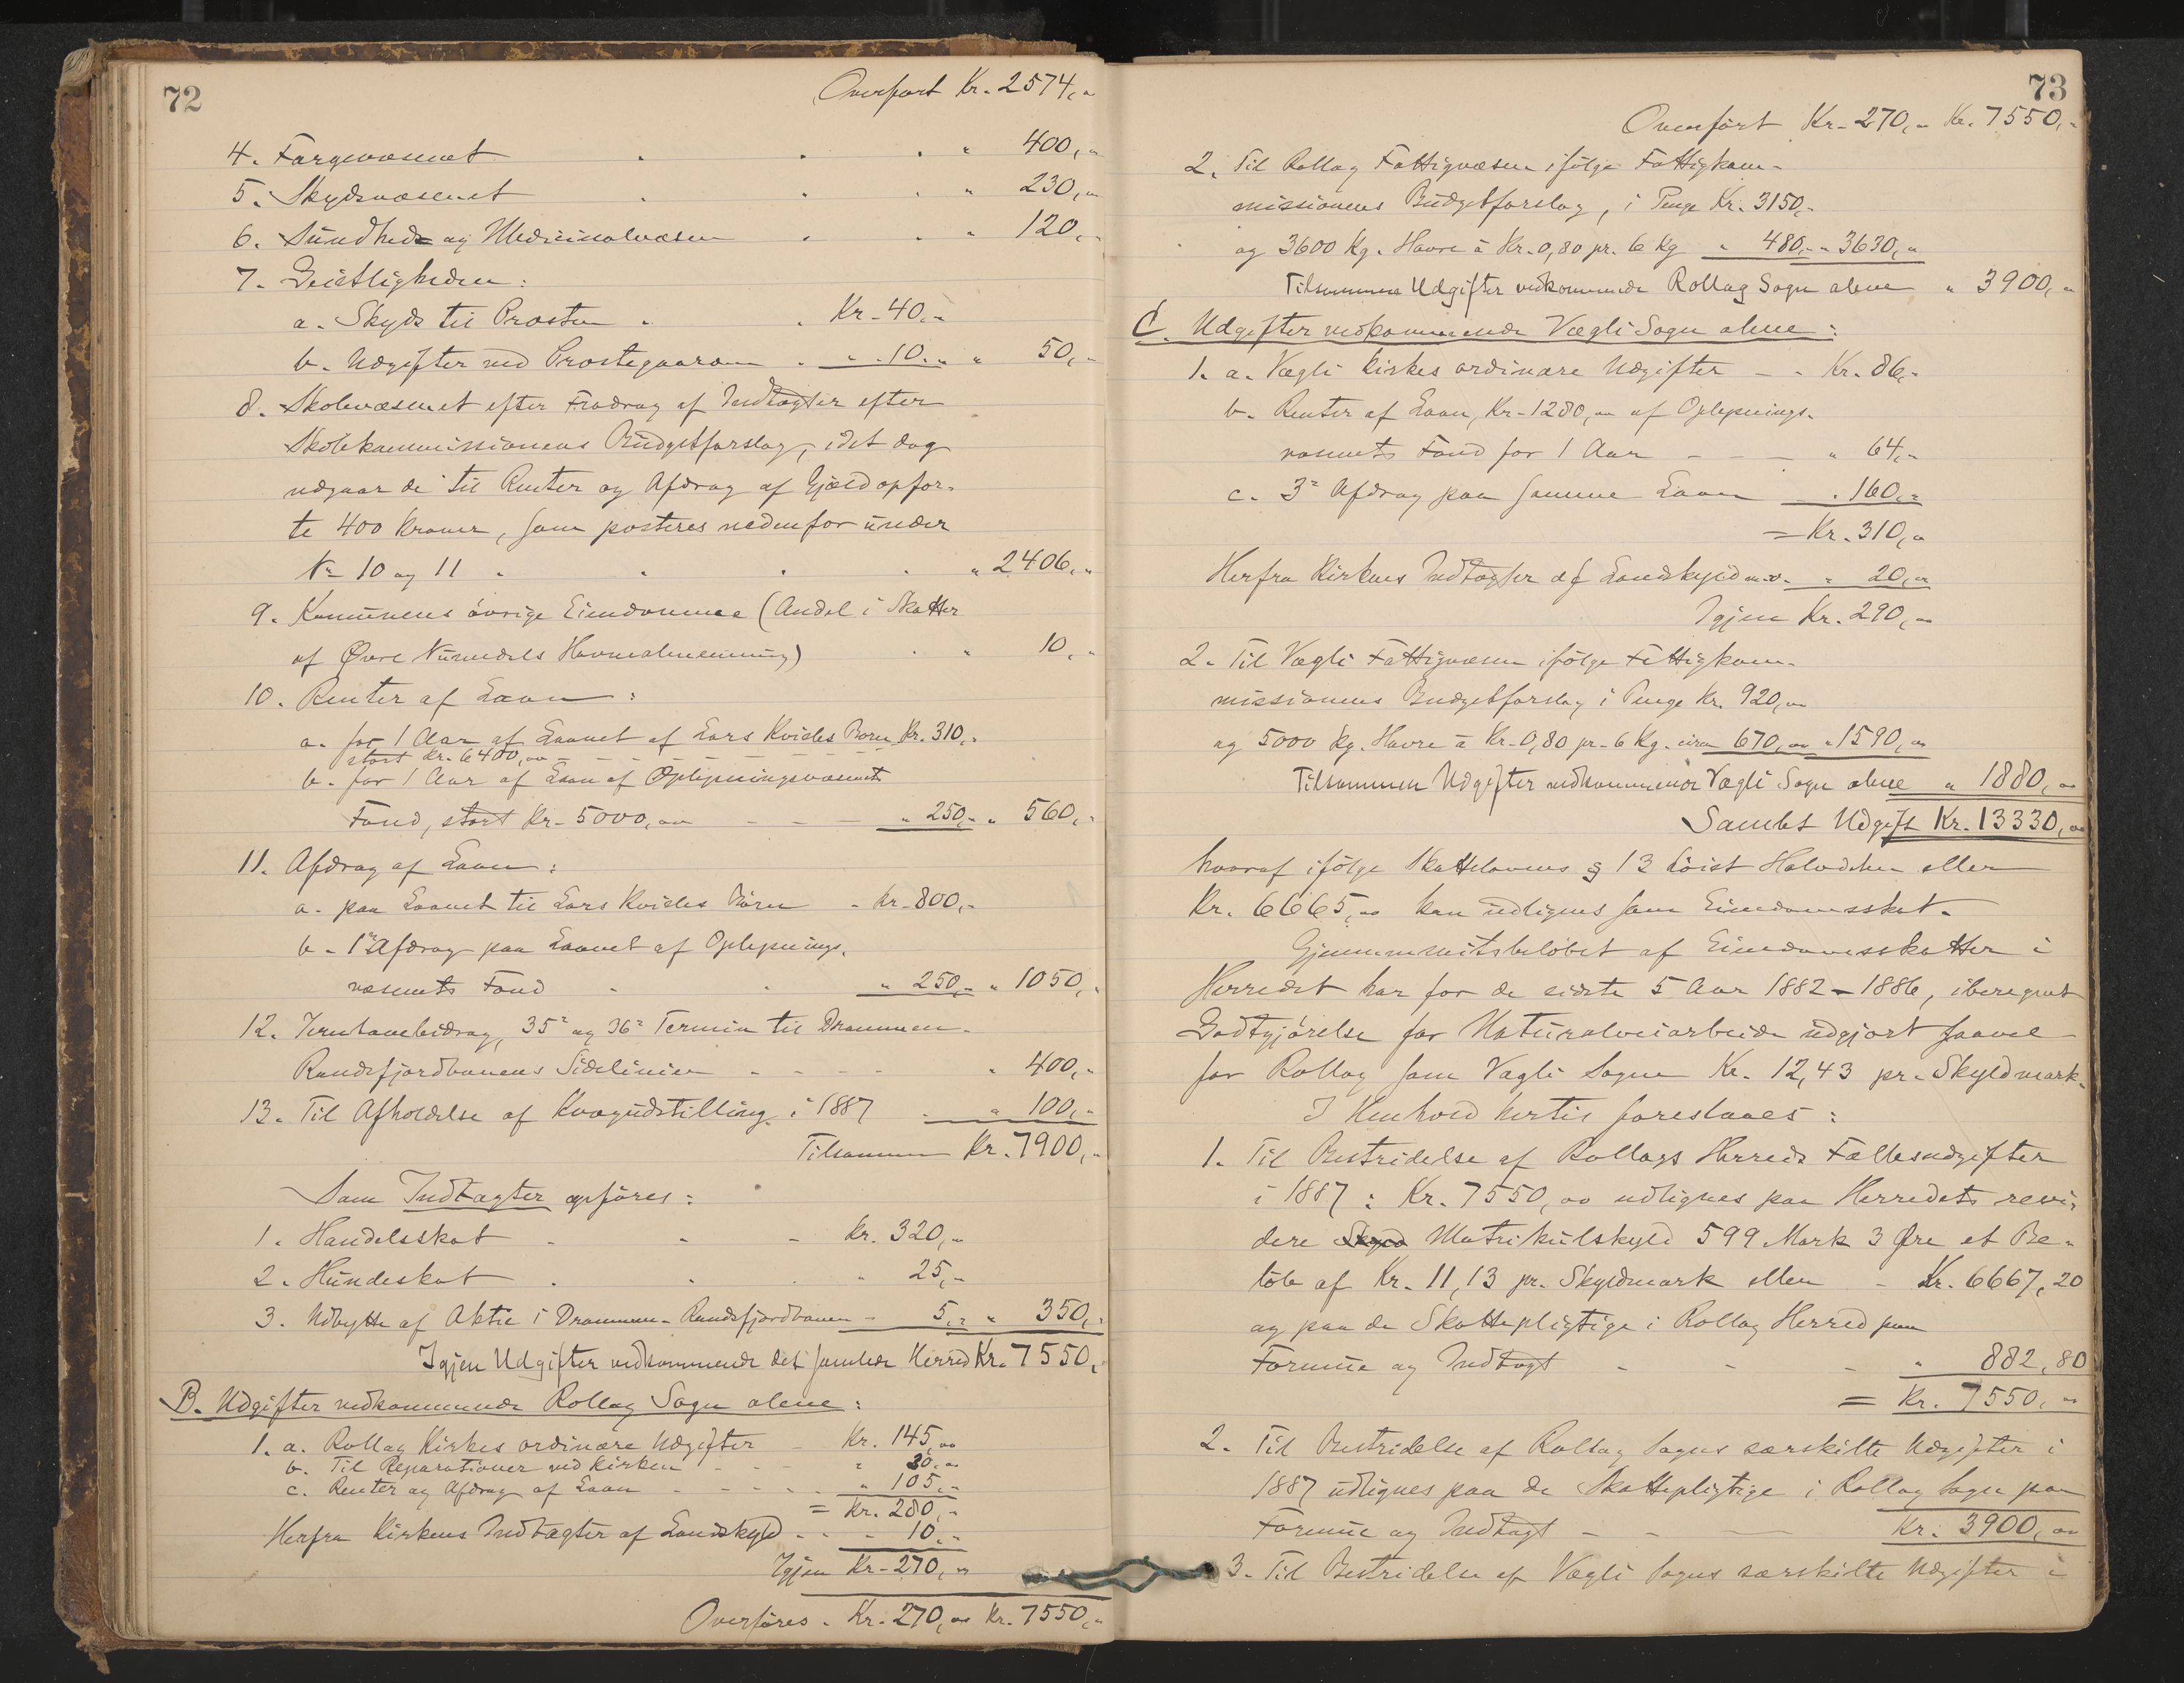 72
Overført Kr. 2574,"
4. Fargevæsenet . . . " 400,"
5. Skydsvæsenet . . . " 230,"
6. Sundheds og Medicinalvæsen . . " 120,"
7. Geistligheden:
a. Skyds til Prosten . . Kr. 40,"
b. Udgifter ved Prostegaarden . " 10," " 50,"
8. Skolevæsenet efter Fradrag af Indtægter efter
Skolekommissionens Budgetforslag, idet dog
udgaar de til Renter og Afdrag af Gjæld opfør-
te 400 Kroner, som posteres nedenfor under
No 10 og 11 . . . . " 2406,"
9. Kommunens øvrige Eiendomme (Andel i Skatter
af Øvre Numedals Havnealmenning) . " 10,"
10. Renter af Laan:
a. for 1 Aar af Laanet af Lars Kvisles Børn Kr. 310,"
stort Kr. 6400,00 - - - -
b. for 1 Aar af Laan af Oplysningsvæsenets
Fond, stort Kr. 5000,00 - - - " 250,- " 560,"
11. Afdrag af Laan:
a. paa Laanet til Lars Kvisles Børn - Kr. 800,-
b. 1ste Afdrag paa Laanet af Oplysnings-
væsenets Fond . . " 250,- " 1050,"
12. Jernbanebidrag, 35te og 36te Termin til Drammen-
Randsfjordbanens Sidelinier - - - - " 400,"
13. Til Afholdelse af Kvægudstilling i 1887 . " 100,"
Tilsammen Kr. 7900,"
Som Indtægter opføres:
1. Handelsskat - - - Kr. 320,"
2. Hundeskat . . . " 25,"
3. Udbytte af Aktie i Drammen-Randsfjordbanen - 5," " 350,"
Igjen Udgifter vedkommende det samlede Herred Kr. 7550,"
B. Udgifter vedkommende Rollag Sogn alene:
1. a. Rollag Kirkes ordinære Udgifter - Kr. 145,00
b. Til Reparationer ved Kirken - - - " 30,00
c. Renter og Afdrag af Laan - - - - " 105,"
= Kr. 280,"
Herfra Kirkens Indtægter af Landskyld - - - 10,"
Igjen Kr. 270,"
Overføres. Kr. 270,00 Kr. 7550,"
73
Overført Kr. 270,- Kr. 7550,"
2. Til Rollag Fattigvæsen ifølge Fattigkom-
missionens Budgetforslag, i Penge Kr. 3150,-
og 3600 Kg. Havre à Kr. 0,80 pr. 6 Kg " 480,- " 3630,"
Tilsammen Udgifter vedkommende Rollag Sogn alene " 3900,"
C. Udgifter vedkommende Vægli Sogn alene:
1. a. Vægli Kirkes ordinære Udgifter - - Kr. 86,-
b. Renter af Laan, Kr. 1280,00 af Oplysnings-
væsenets Fond for 1 Aar - - - " 64,-
c. 3die Afdrag paa samme Laan - " 160,"
= Kr. 310,"
Herfra Kirkens Indtægter af Landskyld m.v. - " 20,"
Igjen Kr. 290,"
2. Til Vægli Fattigvæsen ifølge Fattigkom-
missionens Budgetforslag i Penge Kr. 920,00
og 5000 Kg. Havre à Kr. 0,80 pr. 6 Kg. circa 670,00 " 1590,00
Tilsammen Udgifter vedkommende Vægli Sogn alene " 1880,00
Samlet Udgift Kr. 13330,00
hvoraf ifølge Skattelovens § 13 høist Halvdelen eller
Kr. 6665,00 kan udlignes som Eiendomsskat.
Gjennemsnitsbeløbet af Eiendomsskatter i
Herredet har for de sidste 5 Aar 1882-1886, iberegnet
Godtgjørelse for Naturalveiarbeide udgjort saavel
for Rollag som Vægli Sogn Kr. 12,43 pr. Skyldmark.
I Henhold hertil foreslaaes:
1. Til Bestridelse af Rollags Herreds Fællesudgifter
i 1887: Kr. 7550,00 udlignes paa Herredets revi-
dere Skyld Matrikulskyld 599 Mark 3 Øre et Be-
løb af Kr. 11,13 pr. Skyldmark eller - Kr. 6667,20
og paa de Skattepligtige i Rollag Herred paa
Formue og Indtægt - - - " 882,80
= Kr. 7550,"
2. Til Bestridelse af Rollag Sogns særskilte Udgifter i
1887 udlignes paa de Skattepligtige i Rollag Sogn paa
Formue og Indtægt - - - Kr. 3900,00
3. Til Bestridelse af Vægli Sogns særskilte Udgifter i